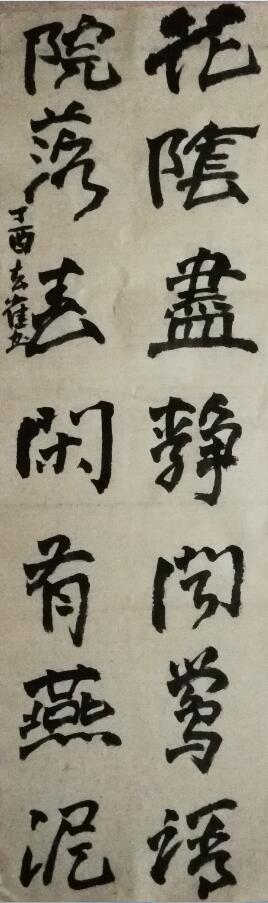 花陰晝靜聞鶯語
院落春閑有燕泥
丁酉